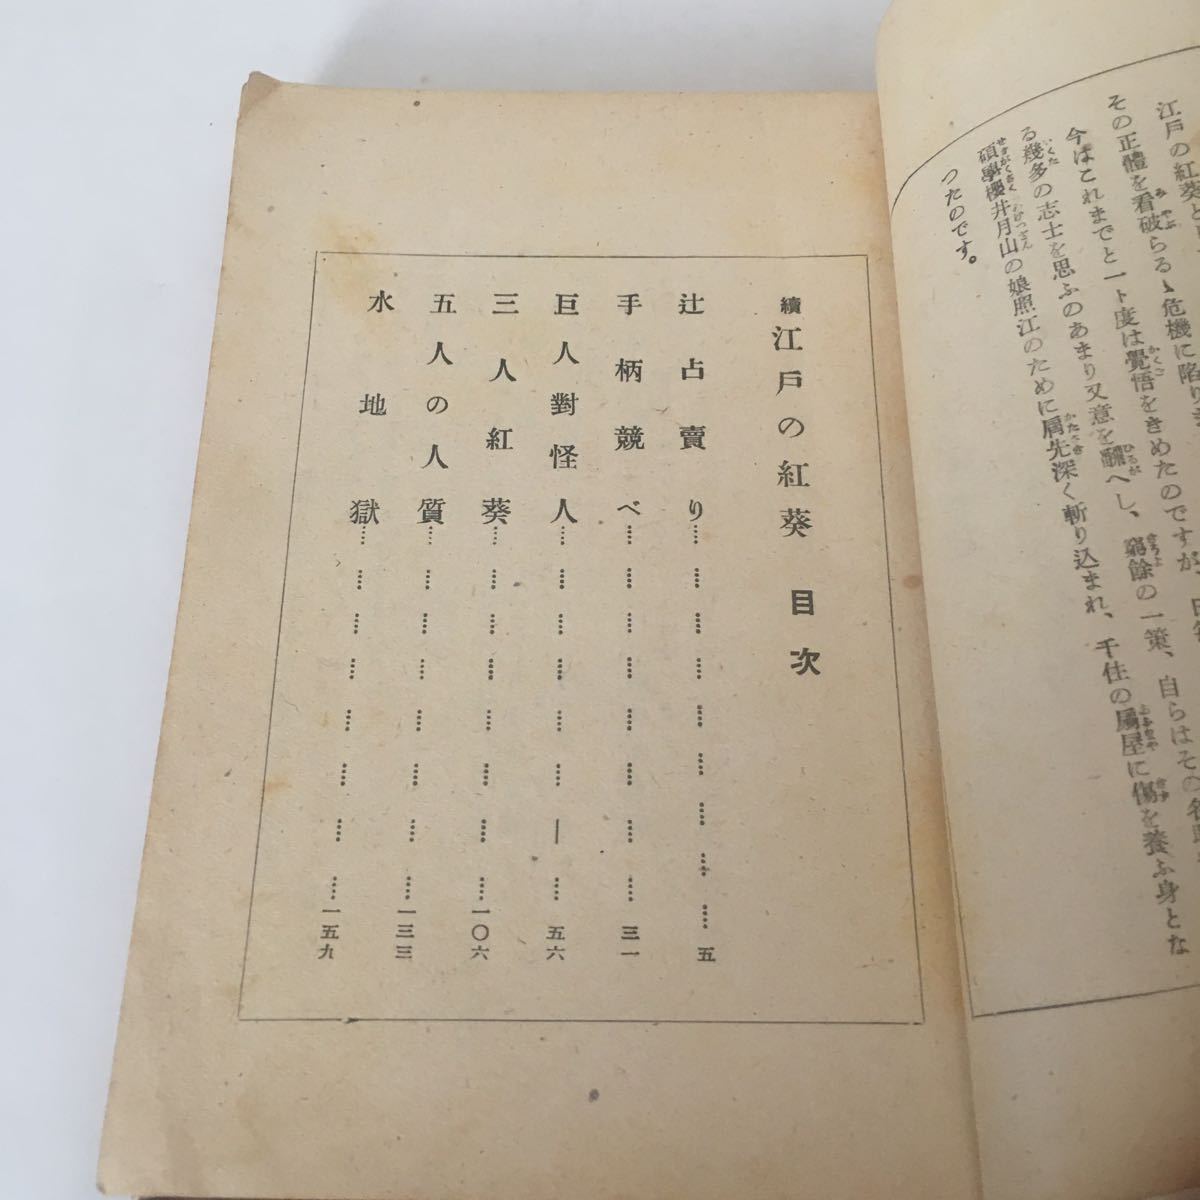 江戸の紅葵と
その正體を看破らるゝ危機に陥りま
今はこれまでと一ト度は覺悟をきめたのですが、
る幾多の志士を思ふのあまり又意を飜へし、窮餘の一策、自らはその名
碩學櫻井月山の娘照江のために肩先深く斬り込まれ、千住の屑屋に傷を養ふ身とな
つたのです。
續江戸の紅葵 目次
辻占賣り……五
手柄競べ……三一
巨人對怪人……五六
三人紅葵……一〇六
五人の人質……一三三
水地獄……一五九